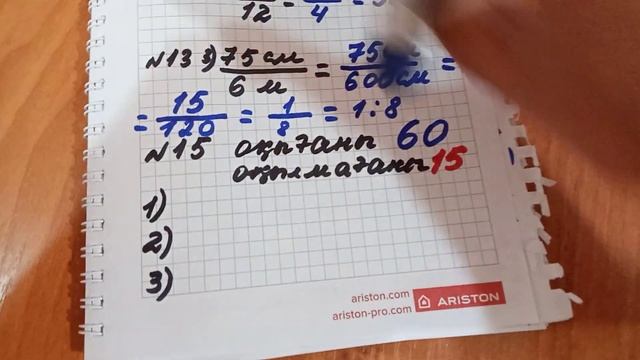 12 = 4 =
№13 3) 75 см / 6 м = 75 / 600 см =
= 15/120 = 1/8 = 1:8
№15 оқығаны 60
оқылмағаны 15
1)
2)
3)
ariston.com
ariston-pro.com
ARISTON